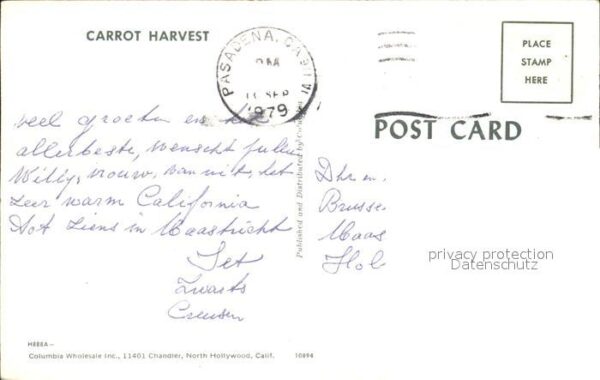 CARROT HARVEST
PASADENA, CA
PM
SEP
1979
PLACE
STAMP
HERE
POST CARD
veel groeten en het
allerbeste, wenscht jullie
Willy, vrouw, van uit, het
zeer warm California
Tot ziens in Maastricht
Jet
Zwarts
Creusen
Dhr en
Brusse
Maas
Hol
privacy protection
Datenschutz
Published and Distributed by
H888A-
Columbia Wholesale Inc., 11401 Chandler, North Hollywood, Calif.
10894